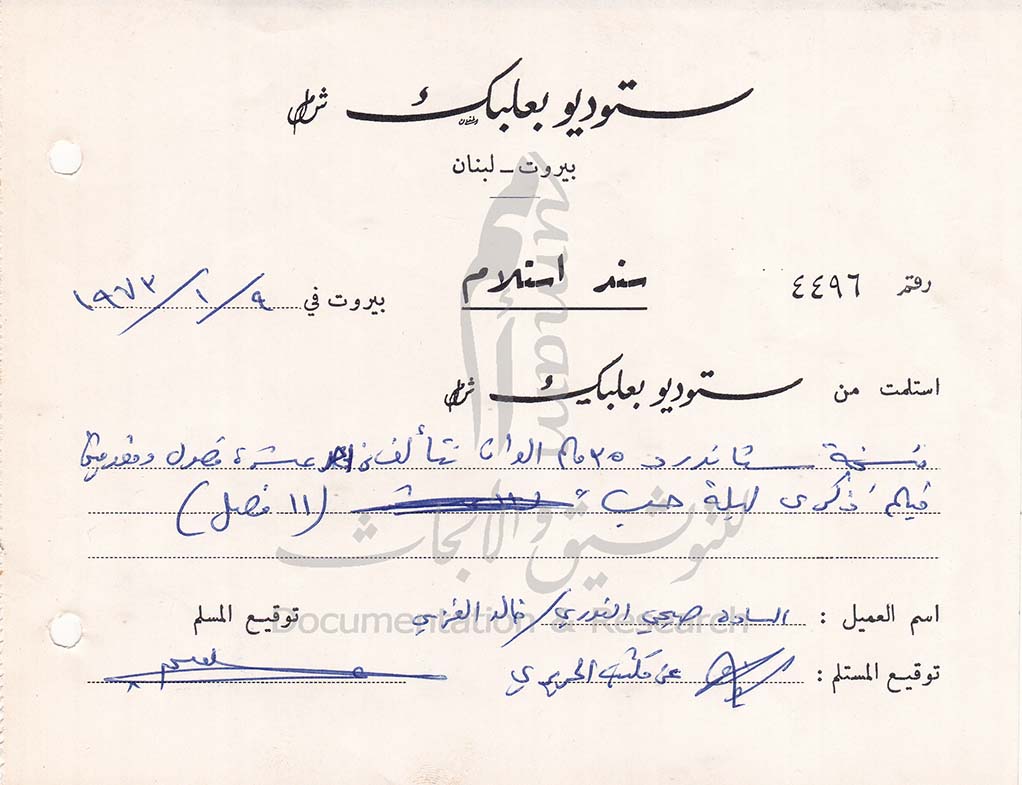 ستوديو بعلبك ش م ل
بيروت ـ لبنان
رقم ٤٤٩٦
سند استلام
بيروت في ٩/١/١٩٧٣
استلمت من ستوديو بعلبك ش م ل
نسخة ستاندرد ٣٥ ملم الوان تتألف من عشرة فصول ومقدمة
فيلم "ذكرى ليلة حب" (١١ فصل)
اسم العميل : السادة صبحي النوري / خالد الغزي
توقيع المسلم
توقيع المستلم : عن مكتب الحريري
umam
للتوثيق والأبحاث
Documentation & Research